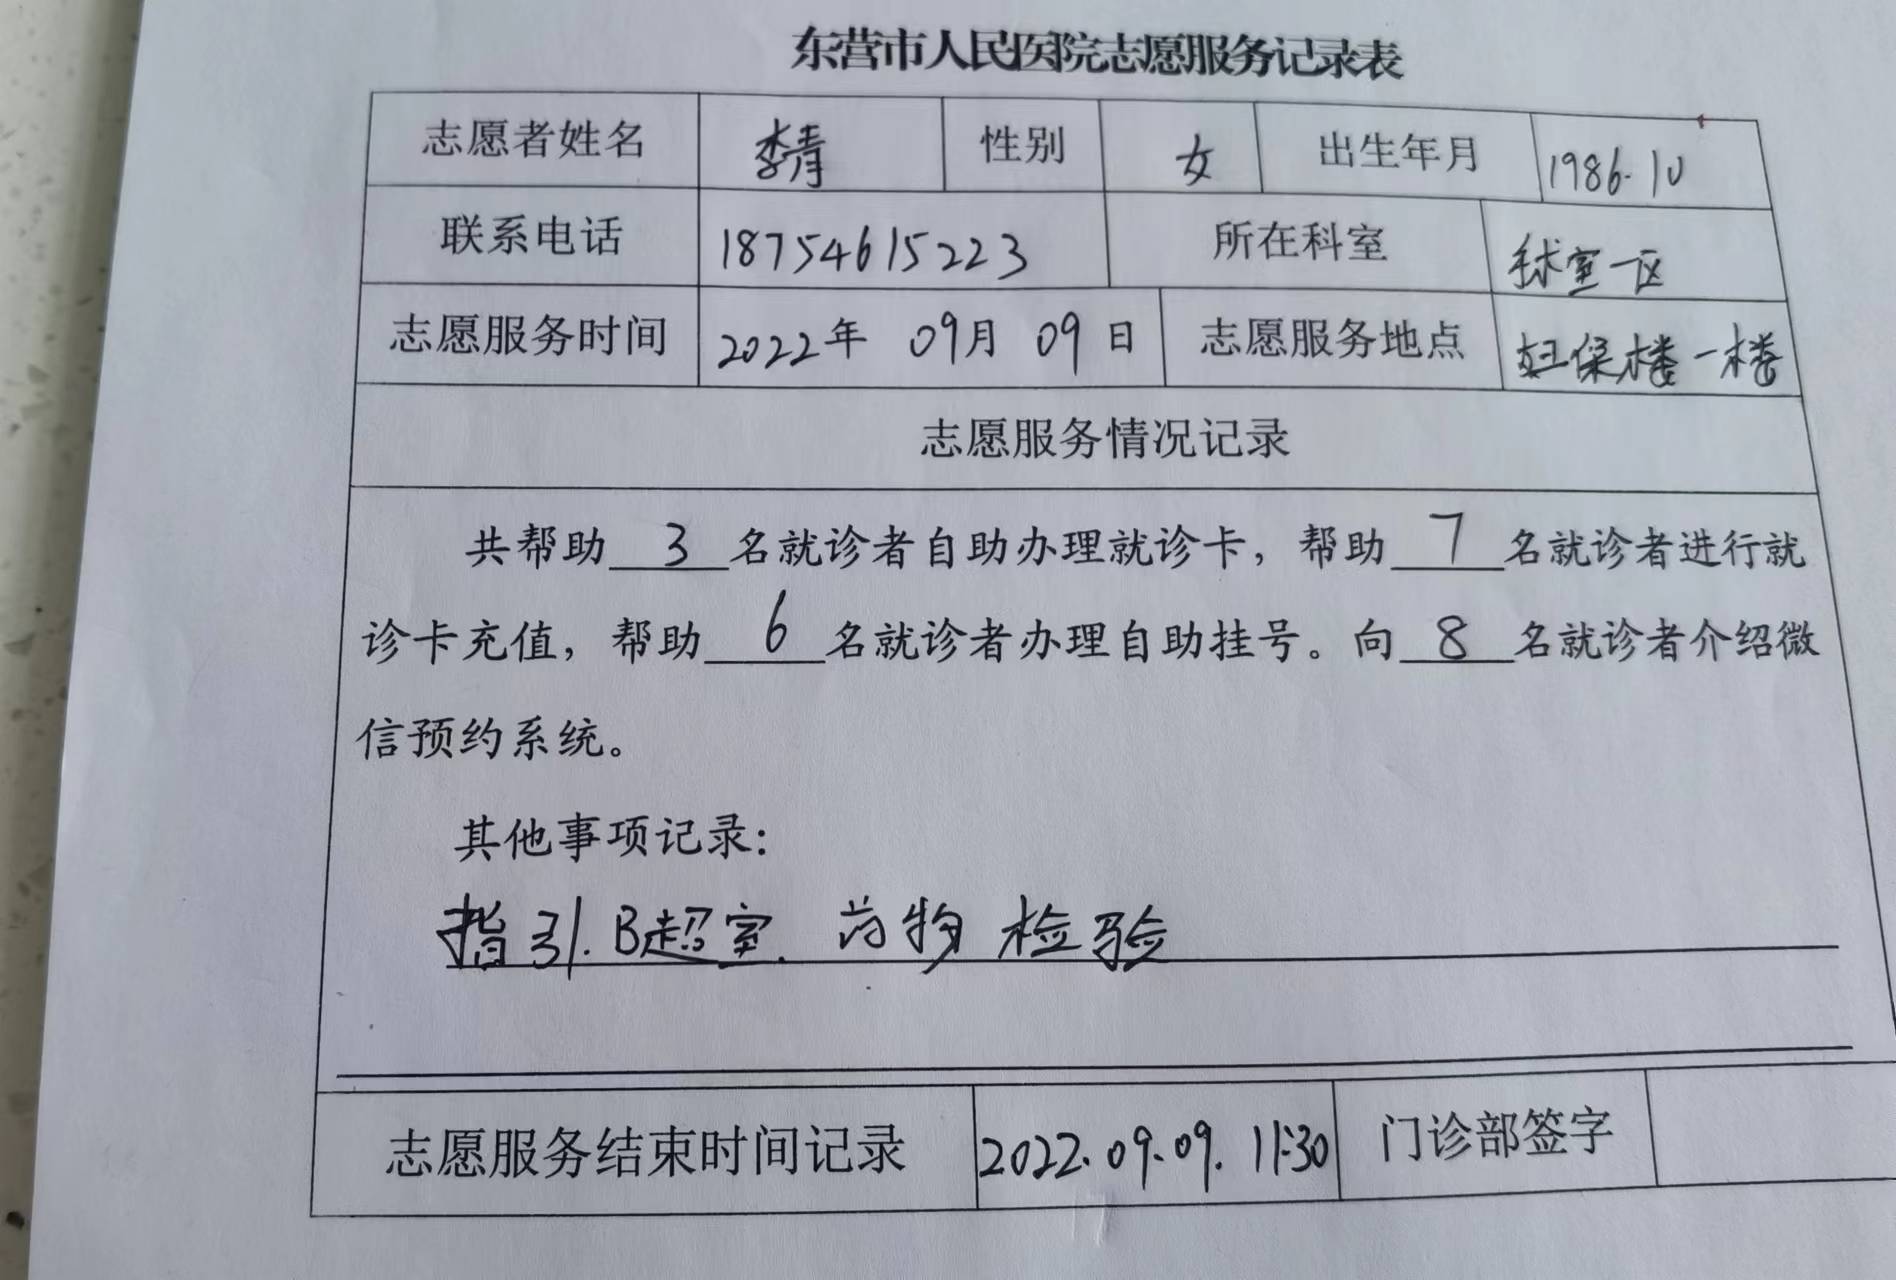 东营市人民医院志愿服务记录表
志愿者姓名 李青 性别 女 出生年月 1986.10
联系电话 18754615223 所在科室 手术室一区
志愿服务时间 2022年 09月 09日 志愿服务地点 妇保楼一楼
志愿服务情况记录
共帮助 3 名就诊者自助办理就诊卡，帮助 7 名就诊者进行就
诊卡充值，帮助 6 名就诊者办理自助挂号。向 8 名就诊者介绍微
信预约系统。
其他事项记录：
指引.B超室.药物 检验
志愿服务结束时间记录 2022.09.09. 11:30 门诊部签字